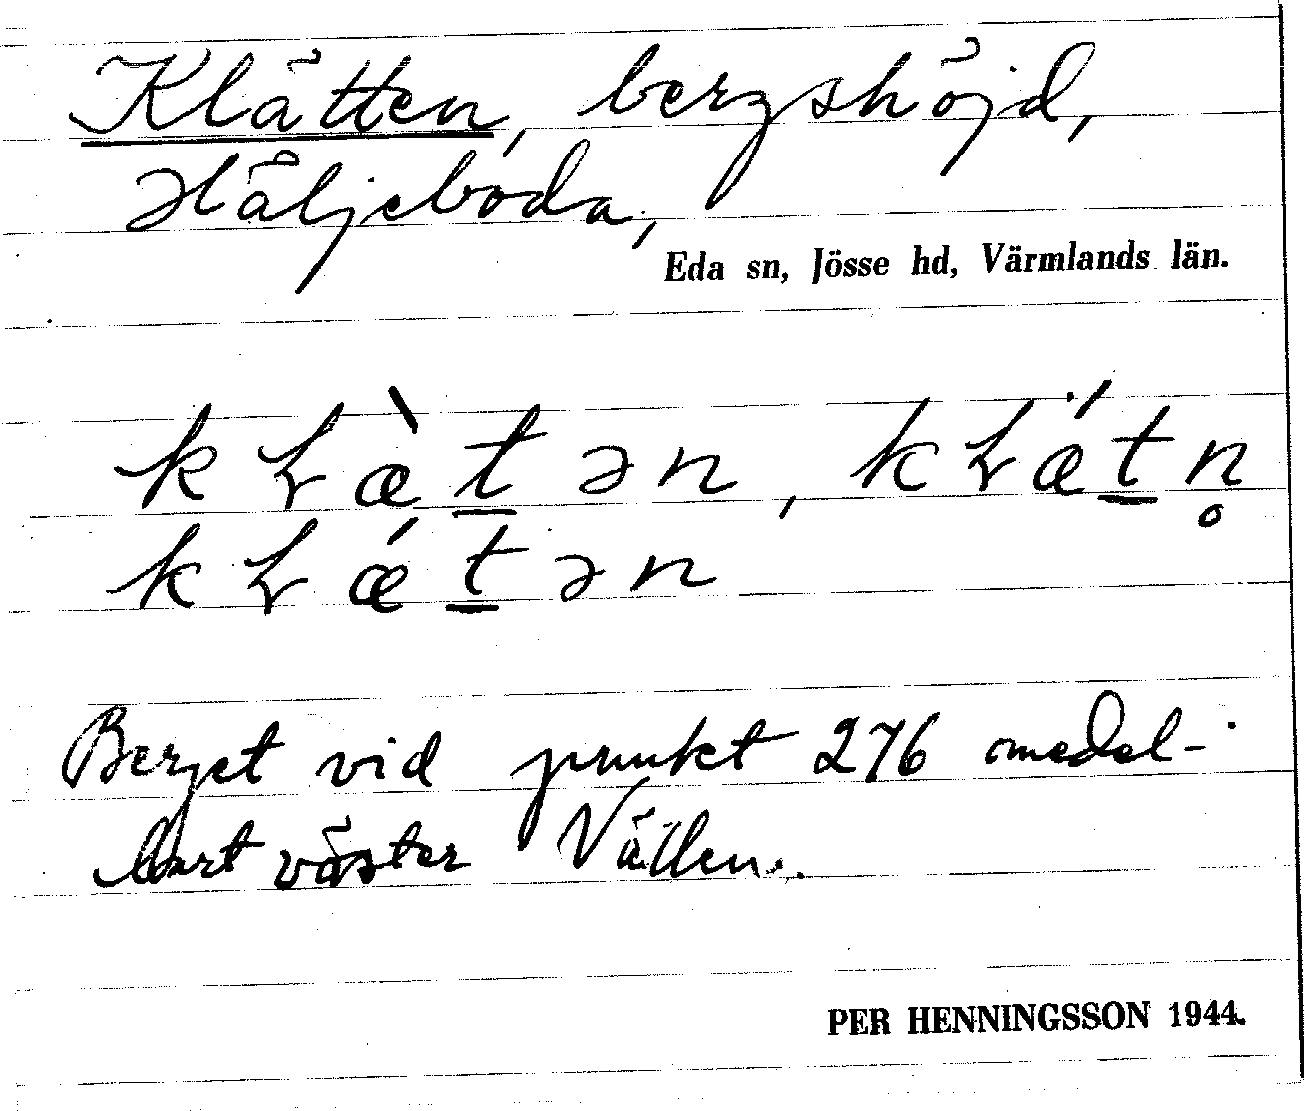 Klätten, bergshöjd,
Häljeboda,
Eda sn, Jösse hd, Värmlands län.
k Ƚ æ̀ t̠ ə n, k Ƚ ǽ t̠ n̥
k Ƚ ǽ t̠ ə n
Berget vid punkt 276 medel-
bart väster Vällen.
PER HENNINGSSON 1944.